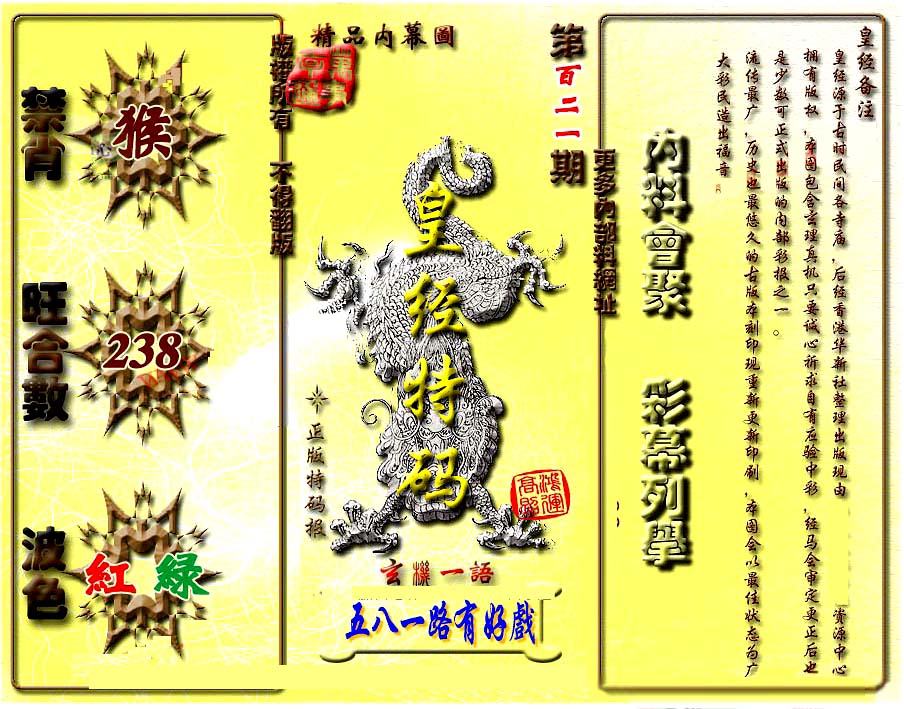 皇经备注
皇经源于古时民间各寺庙，后经香港华新社整理出版现由
资源中心
拥有版权，本图包含玄理真机只要诚心祈求自有应验中彩，经马会审定更正后也
是少数可正式出版的内部彩报之一。
流传最广，历史也最悠久的古版本刻印现重新更新印刷，本图会以最佳状态为广
大彩民造出福音
内料會聚
彩幕列舉
更多内部料網址
第百二一期
精品内幕圖
皇经特码
鴻運高照
正版特码报
玄機一語
五八一路有好戲
版權所有 不得翻版
禁肖
猴
旺合數
238
波色
紅 緑